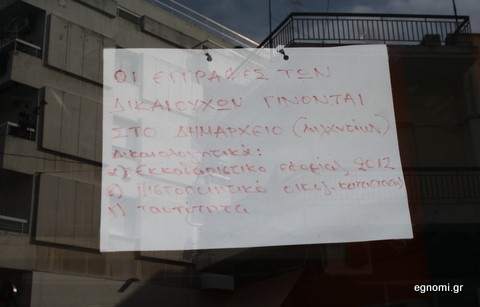 ΟΙ ΕΓΓΡΑΦΕΣ ΤΩΝ
ΔΙΚΑΙΟΥΧΩΝ ΓΙΝΟΝΤΑΙ
ΣΤΟ ΔΗΜΑΡΧΕΙΟ
Δικαιολογητικά:
α) εκκαθαριστικό εφορίας 2012
β) πιστοποιητικό οικογ. κατάστασης
γ) ταυτότητα
egnomi.gr